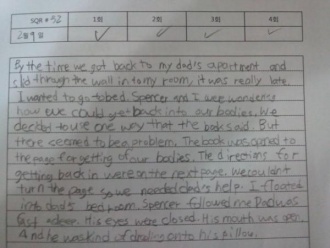 SQR # 52 1회 2회 3회 4회
2월 9일 ✓ ✓ ✓ ✓
By the time we got back to my dad's apartment and
slid through the wall into my room, it was really late.
I wanted to go to bed. Spencer and I were wondering
how we could get back into our bodies. We
decided to use one way that the book said. But
there seemed to be a problem. The book was opened to
the page for getting of our bodies. The directions for
getting back in were on the next page. We couldn't
turn the page so we needed dad's help. I floated
into dad's bedroom. Spencer followed me. Dad was
fast asleep. His eyes were closed. His mouth was open.
And he was kind of drooling onto his pillow.